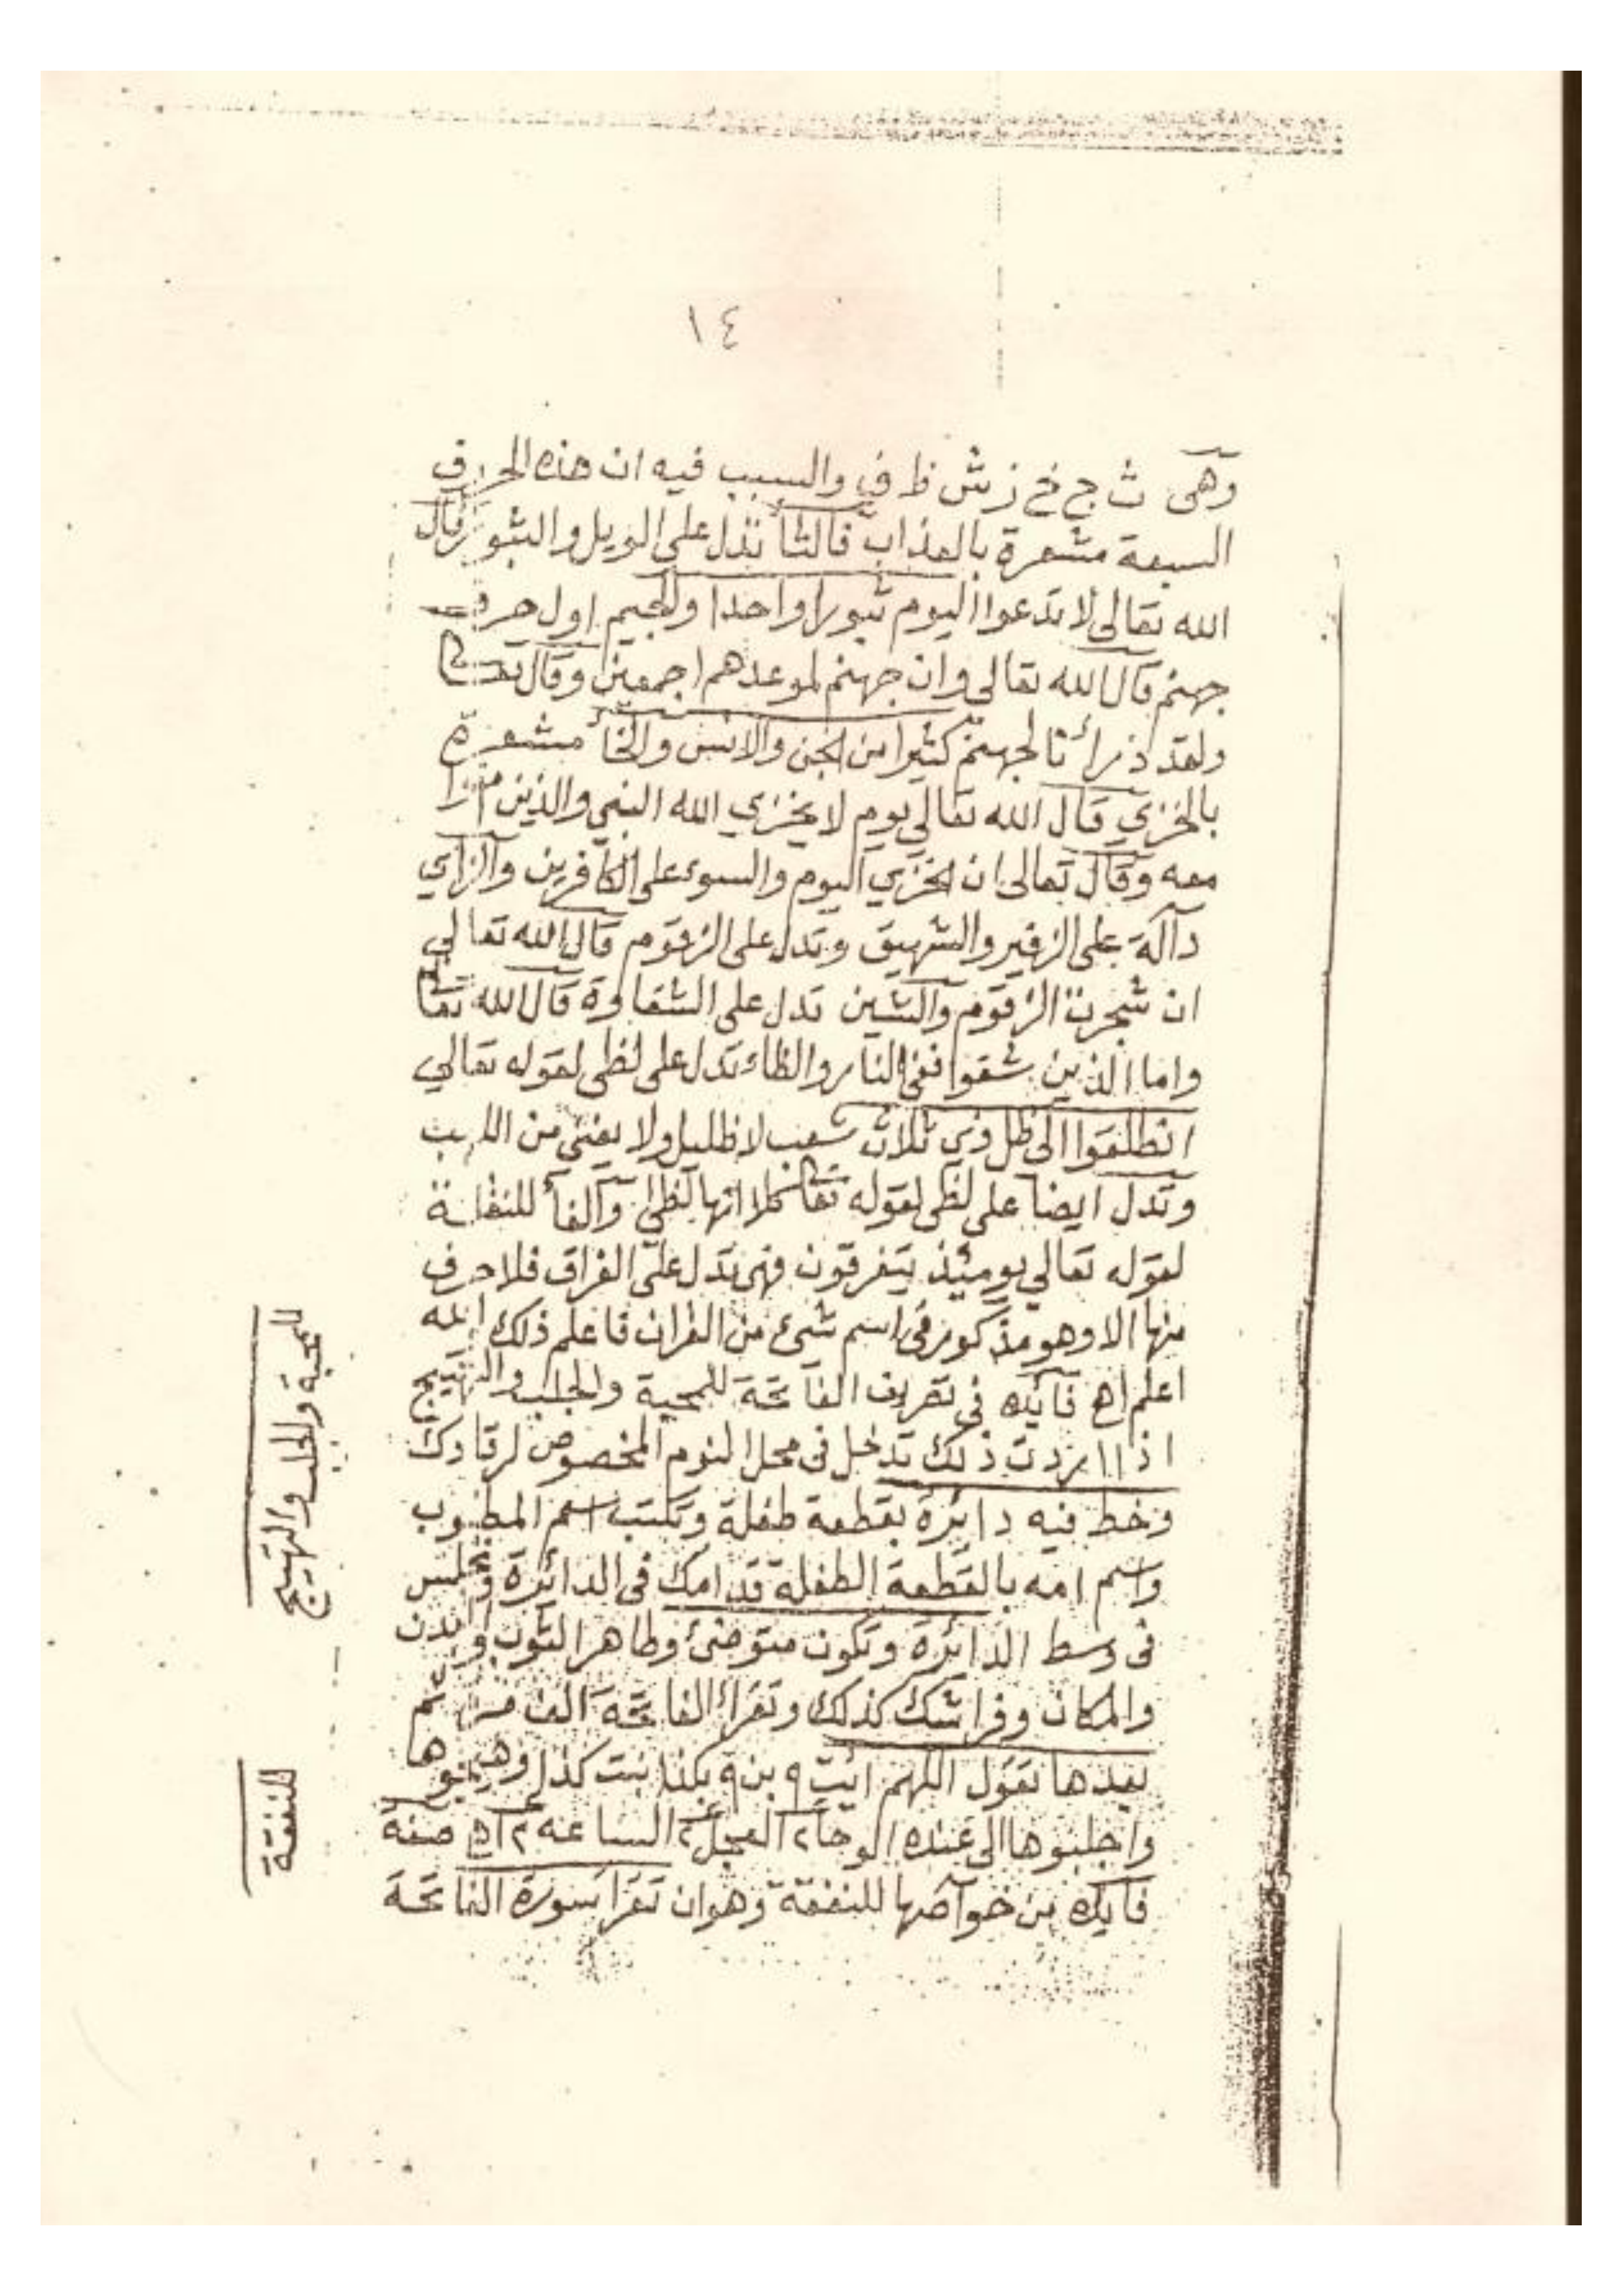 ١٤
وهى ث ج خ ز ش ظ ف والسبب فيه ان هذه الحرف
السبعة مشعرة بالعذاب فالثأ تدل على الويل والثبور قال
الله تعالى لا تدعوا اليوم ثبورا واحدا والجيم اول حرف
جهنم قال الله تعالى وان جهنم لموعدهم اجمعين وقال تعـ
ولقد ذرأنا لجهنم كثيرا من الجن والانس والخأ مشعرة
بالخزي قال الله تعالى يوم لا يخزي الله النبي والذين امنوا
معه وقال تعالى ان الخزي اليوم والسوء على الكافرين والزاي
دآلة على الزفير والشهيق وتدل على الزقوم قال الله تعالي
ان شجرت الزقوم والشين تدل على الشقاوة قال الله تعا
واما الذين شقوا ففى النار والظاء تدل على لظى لقوله تعالي
انطلقوا الى ظل ذي ثلاث شعب لا ظليل ولا يغنى من اللهب
وتدل ايضا على لظى لقوله تعا كلا انها لظى والفأ للنفا
لقوله تعالي يومئذ يتفرقون فهى تدل على الفراق فلا حرف
منها الا وهو مذكور فى اسم شىء من القران فاعلم ذلك
اعلم اهـ فايده فى تصريف الفاتحة للمحبة والجلب والتهييج
اذا اردت ذلك تدخل فى محل النوم المخصوص لرقادك
وخط فيه دائرة بقطعة طفلة وتكتب اسم المطلوب
واسم امه بالقطعة الطفلة قدامك فى الدائرة وتجلس
فى وسط الدائرة وتكون متوضئ وطاهر الثوب والبدن
والمكان وفراشك كذلك وتقرأ الفاتحة الف مره ثم
بعدها تقول اللهم ائت ٩ بن ٩ بكذا بنت كذا وهيجوها
واجلبوها الى عنده الوحا٢ العجل٢ الساعه ٢ اهـ صفة
فايده من خوآصها للنفقة وهو ان تقرأ سورة الفاتحة
للمحبة والجلب والتهييج
للنفقة